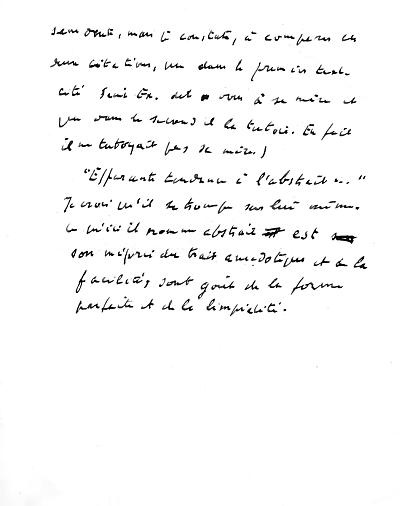 sans doute, mais je constate, à comparer ces
deux citations, que dans le premier texte
cité Saint Ex. dit vous à sa mère et
que dans le second il la tutoie. En fait
il ne tutoyait pas sa mère.)
"Effarante tendance à l'abstrait..."
Je crois qu'il se trompe sur lui même.
Ce qu'ici il nomme abstrait est
son mépris du trait anecdotique et de la
facilité, son goût de la forme
parfaite et de la limpidité.